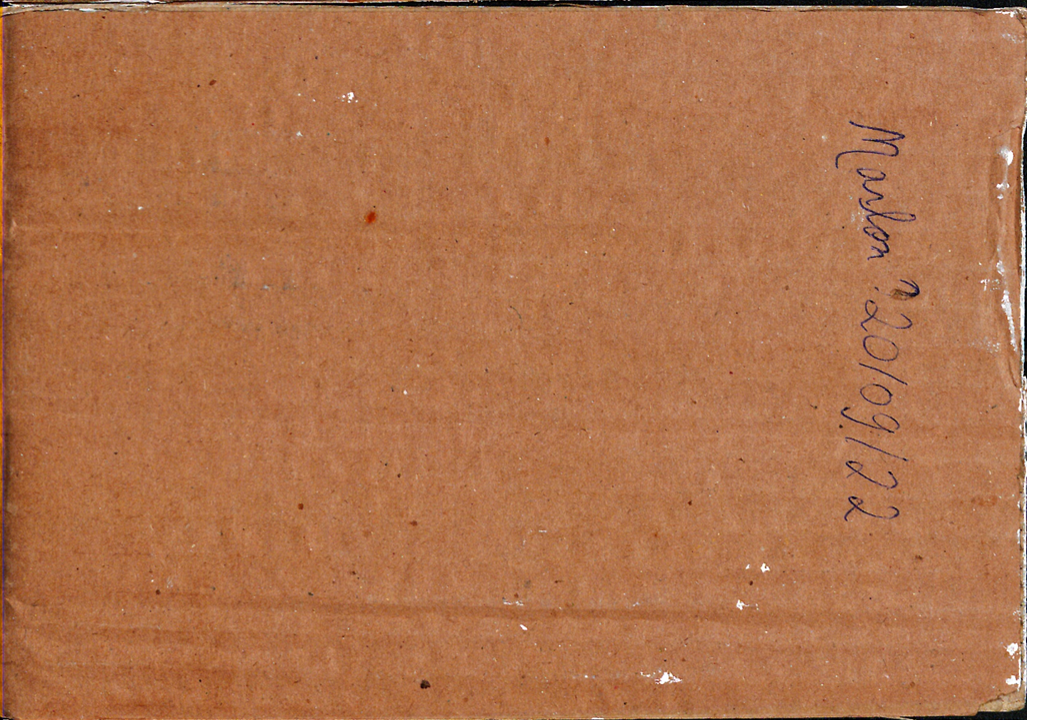 Marlon: 20/09/22